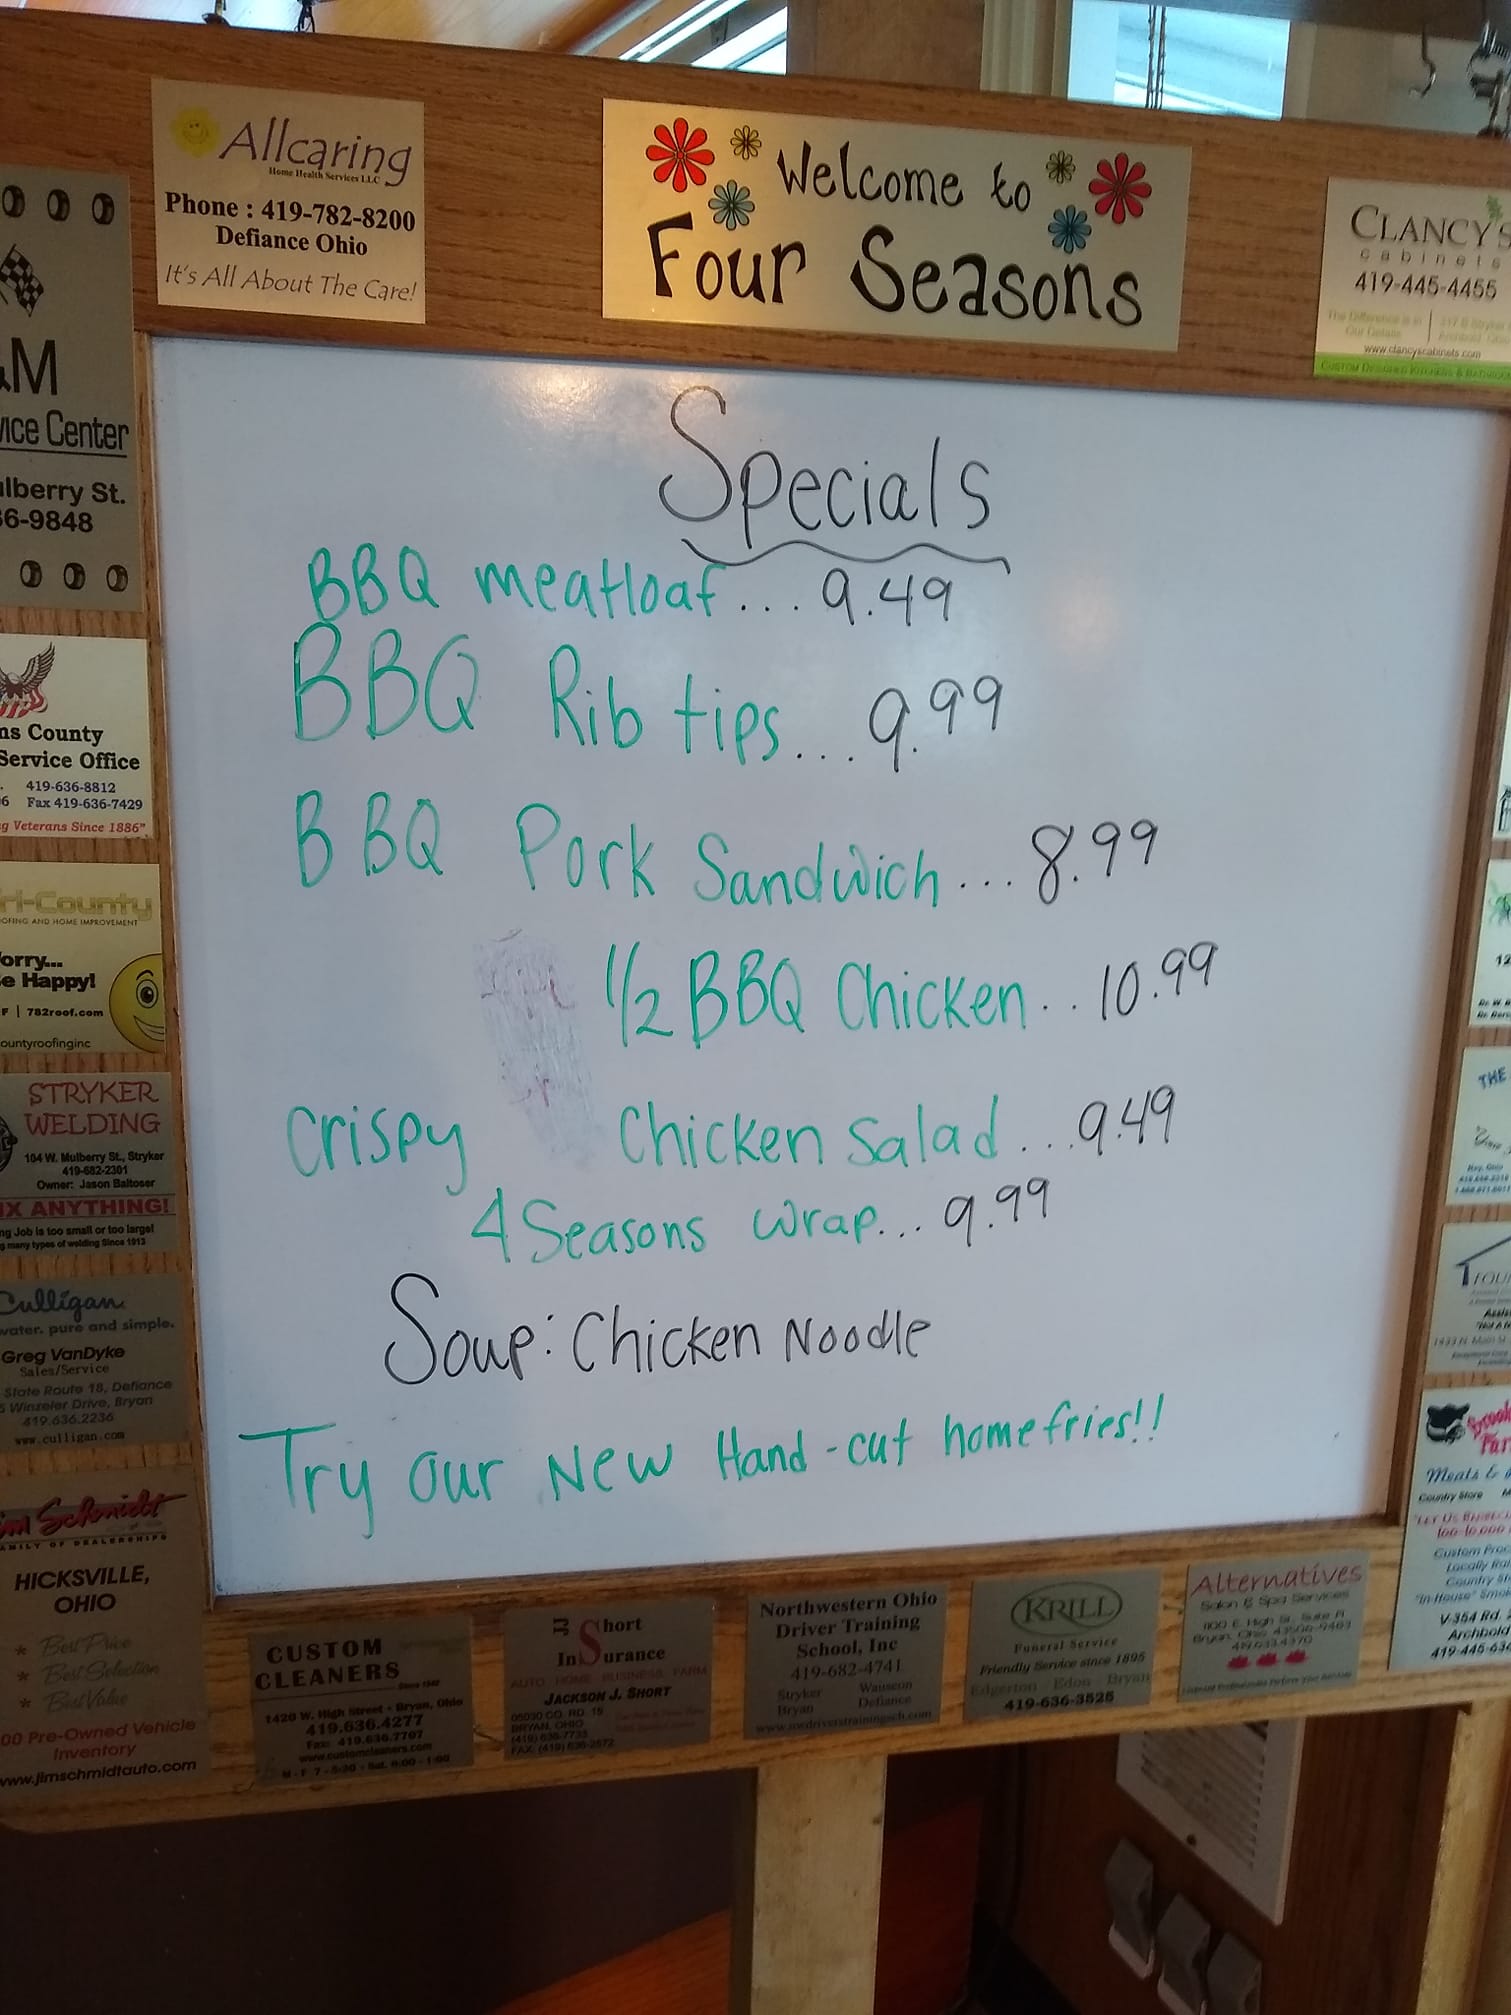 Allcaring
Home Health Services LLC
Phone : 419-782-8200
Defiance Ohio
It's All About The Care!
Welcome to
Four Seasons
CLANCY'S
cabinets
419-445-4455
The Difference is in
Our Details
www.clancyscabinets.com
Specials
BBQ meatloaf... 9.49
BBQ Rib tips... 9.99
BBQ Pork Sandwich... 8.99
1/2 BBQ Chicken.. 10.99
Crispy Chicken Salad... 9.49
4 Seasons wrap... 9.99
Soup: Chicken Noodle
Try our New Hand-cut homefries!!
M
Center
St.
6-9848
County
Service Office
419-636-8812
Fax 419-636-7429
Veterans Since 1886"
i-County
AND HOME IMPROVEMENT
orry...
e Happy!
F | 782roof.com
ountyroofinginc
STRYKER
WELDING
104 W. Mulberry St., Stryker
419-682-2301
Owner: Jason Baltoser
X ANYTHING!
Job is too small or too large!
many types of welding Since 1913
Culligan.
water. pure and simple.
Greg VanDyke
Sales/Service
State Route 18, Defiance
Winzeler Drive, Bryan
419.636.2236
www.culligan.com
im Schmidt
FAMILY OF DEALERSHIPS
HICKSVILLE,
OHIO
* Best Price
* Best Selection
* Best Value
00 Pre-Owned Vehicle
Inventory
www.jimschmidtauto.com
CUSTOM
CLEANERS
1420 W. High Street • Bryan, Ohio
419.636.4277
Fax: 419.636.7707
www.customcleaners.com
M - F 7 - 5:30 • Sat. 8:00 - 1:00
JJ Short
InSurance
AUTO HOME BUSINESS FARM
JACKSON J. SHORT
05030 CO. RD. 15
BRYAN, OHIO
(419) 636-7733
FAX: (419) 636-2572
Northwestern Ohio
Driver Training
School, Inc
419-682-4741
Stryker Wauseon
Bryan Defiance
www.nwdriverstrainingsch.com
KRILL
Funeral Service
Friendly Service since 1895
Edgerton Edon Bryan
419-636-3525
Alternatives
Salon & Spa Services
1100 E. High St., Suite A
Bryan, Ohio 43506-9403
419.633.4370
THE
Meats &
Country Store
Custom
Country
V-354 Rd.
Archbold